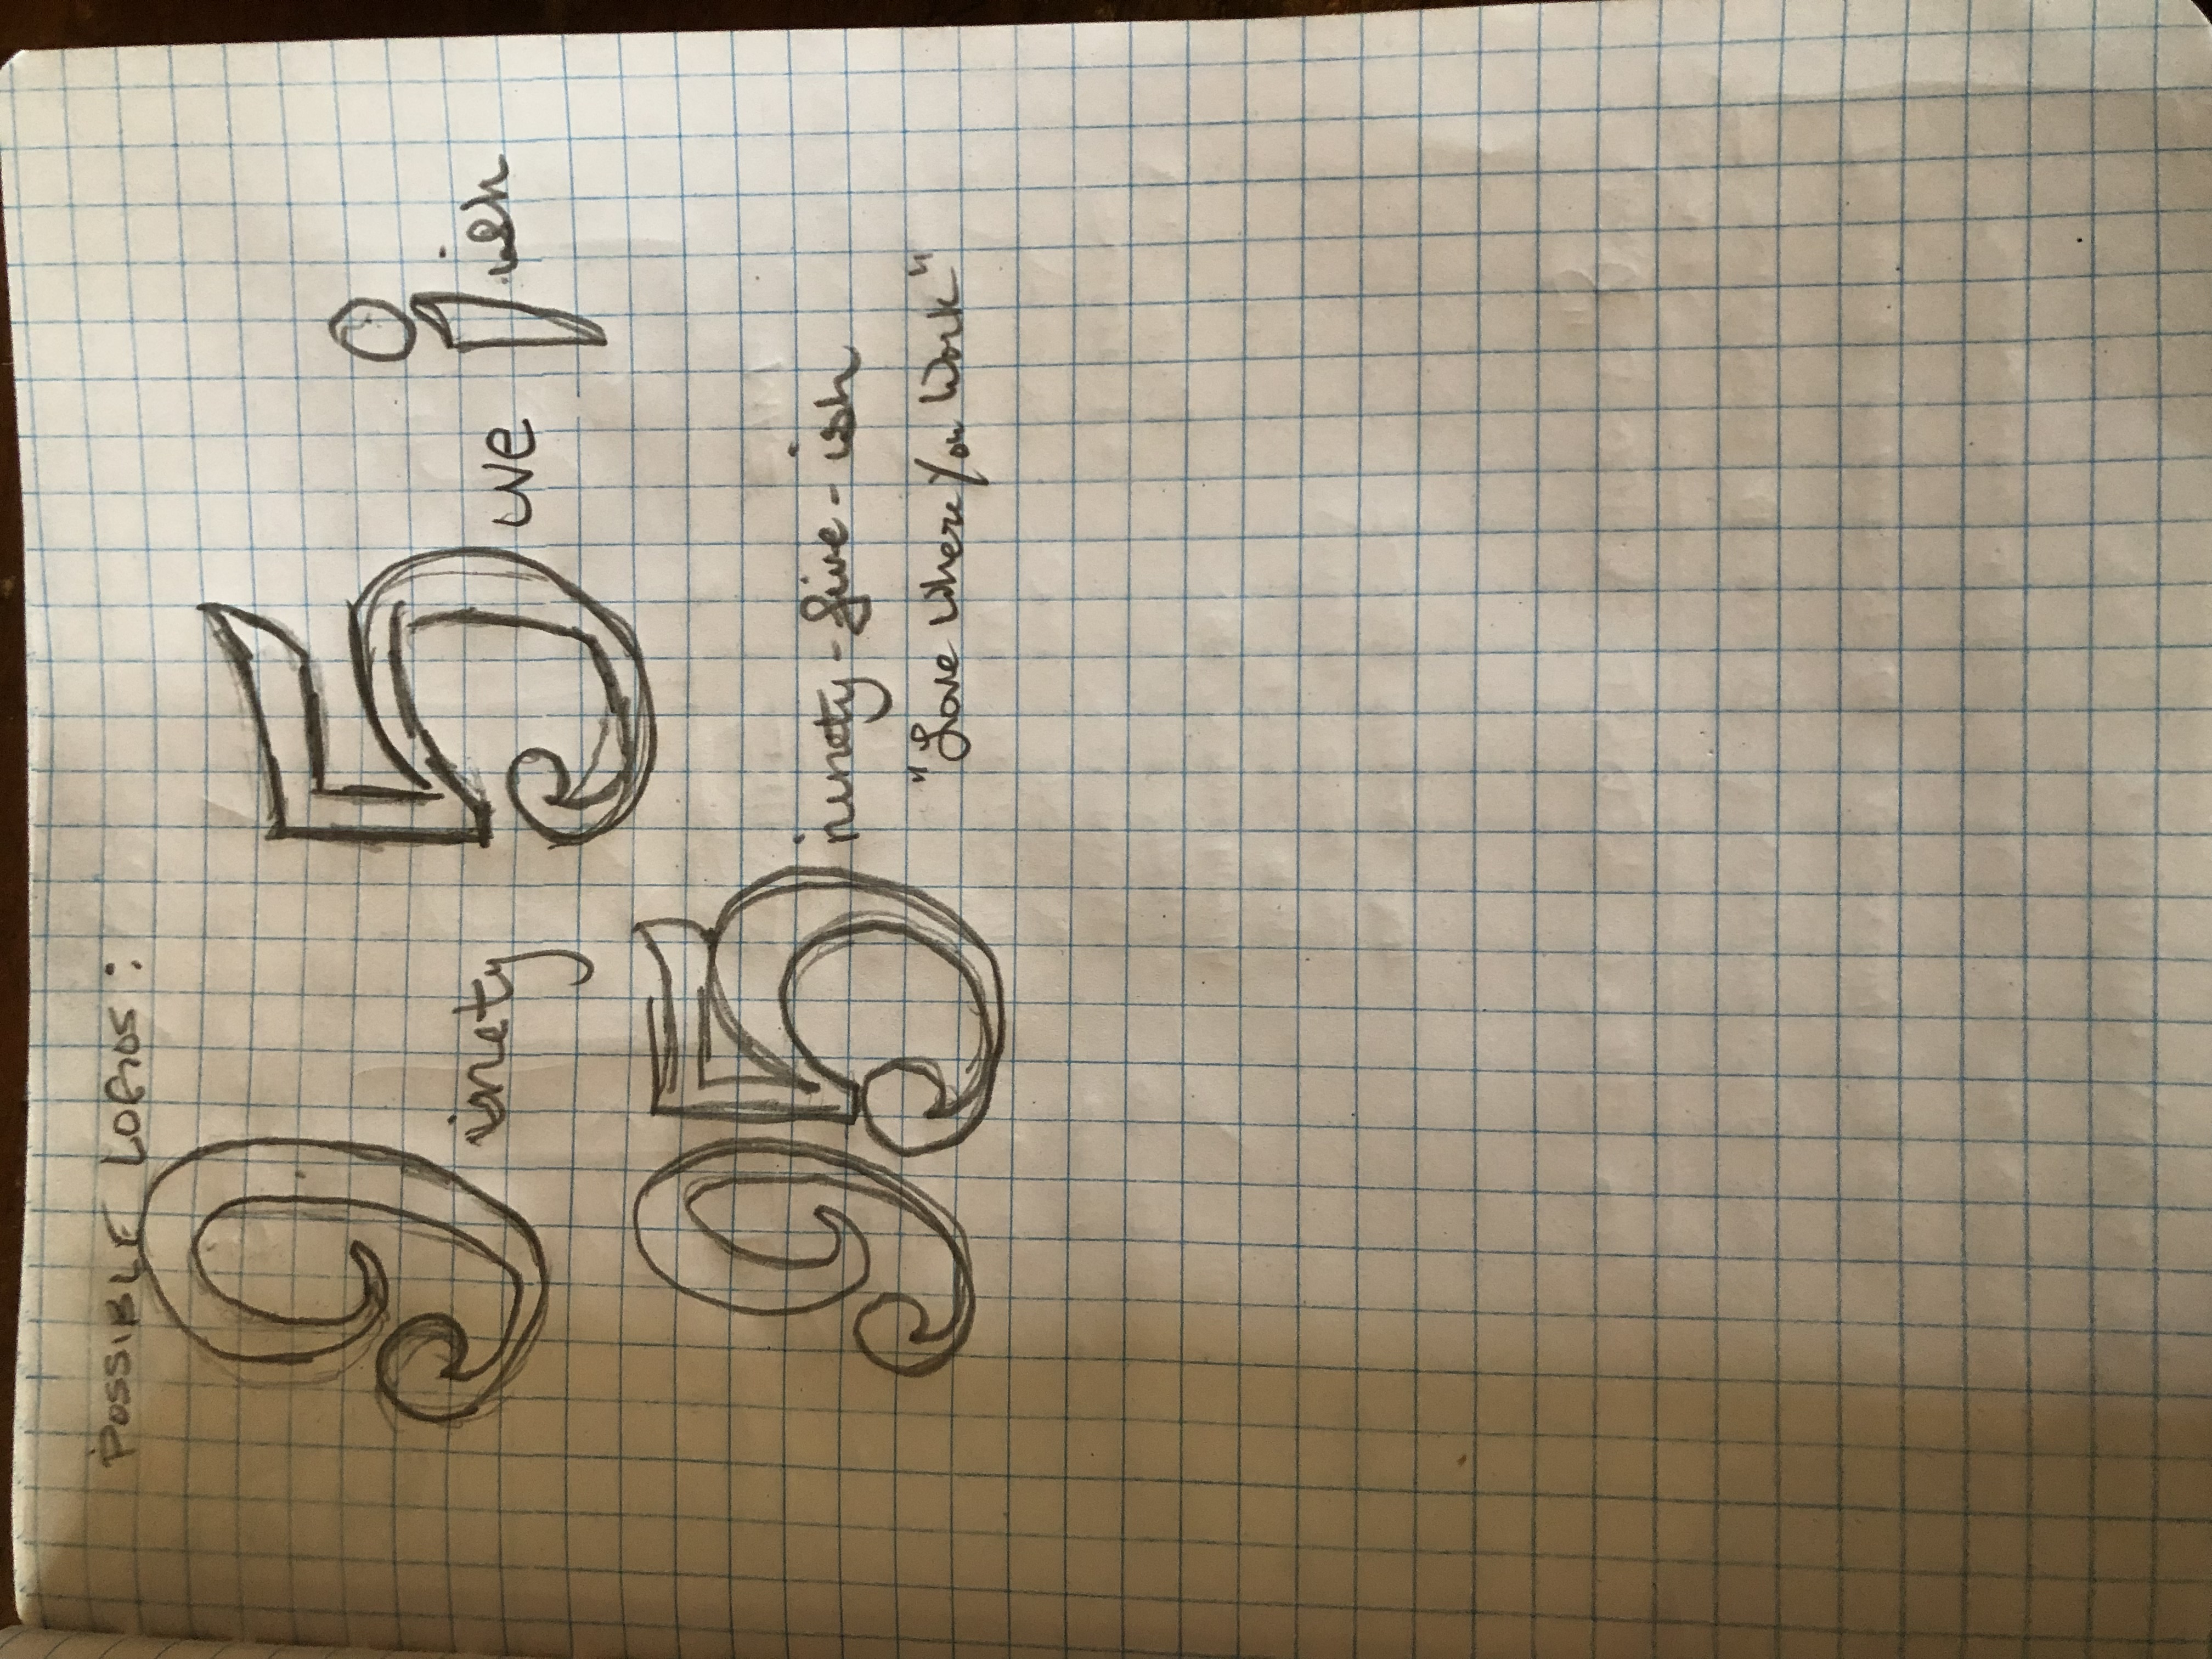 POSSIBLE LOGOS:
9inety 5ive iish
95 ninety-five-ish
"Love Where You Work"